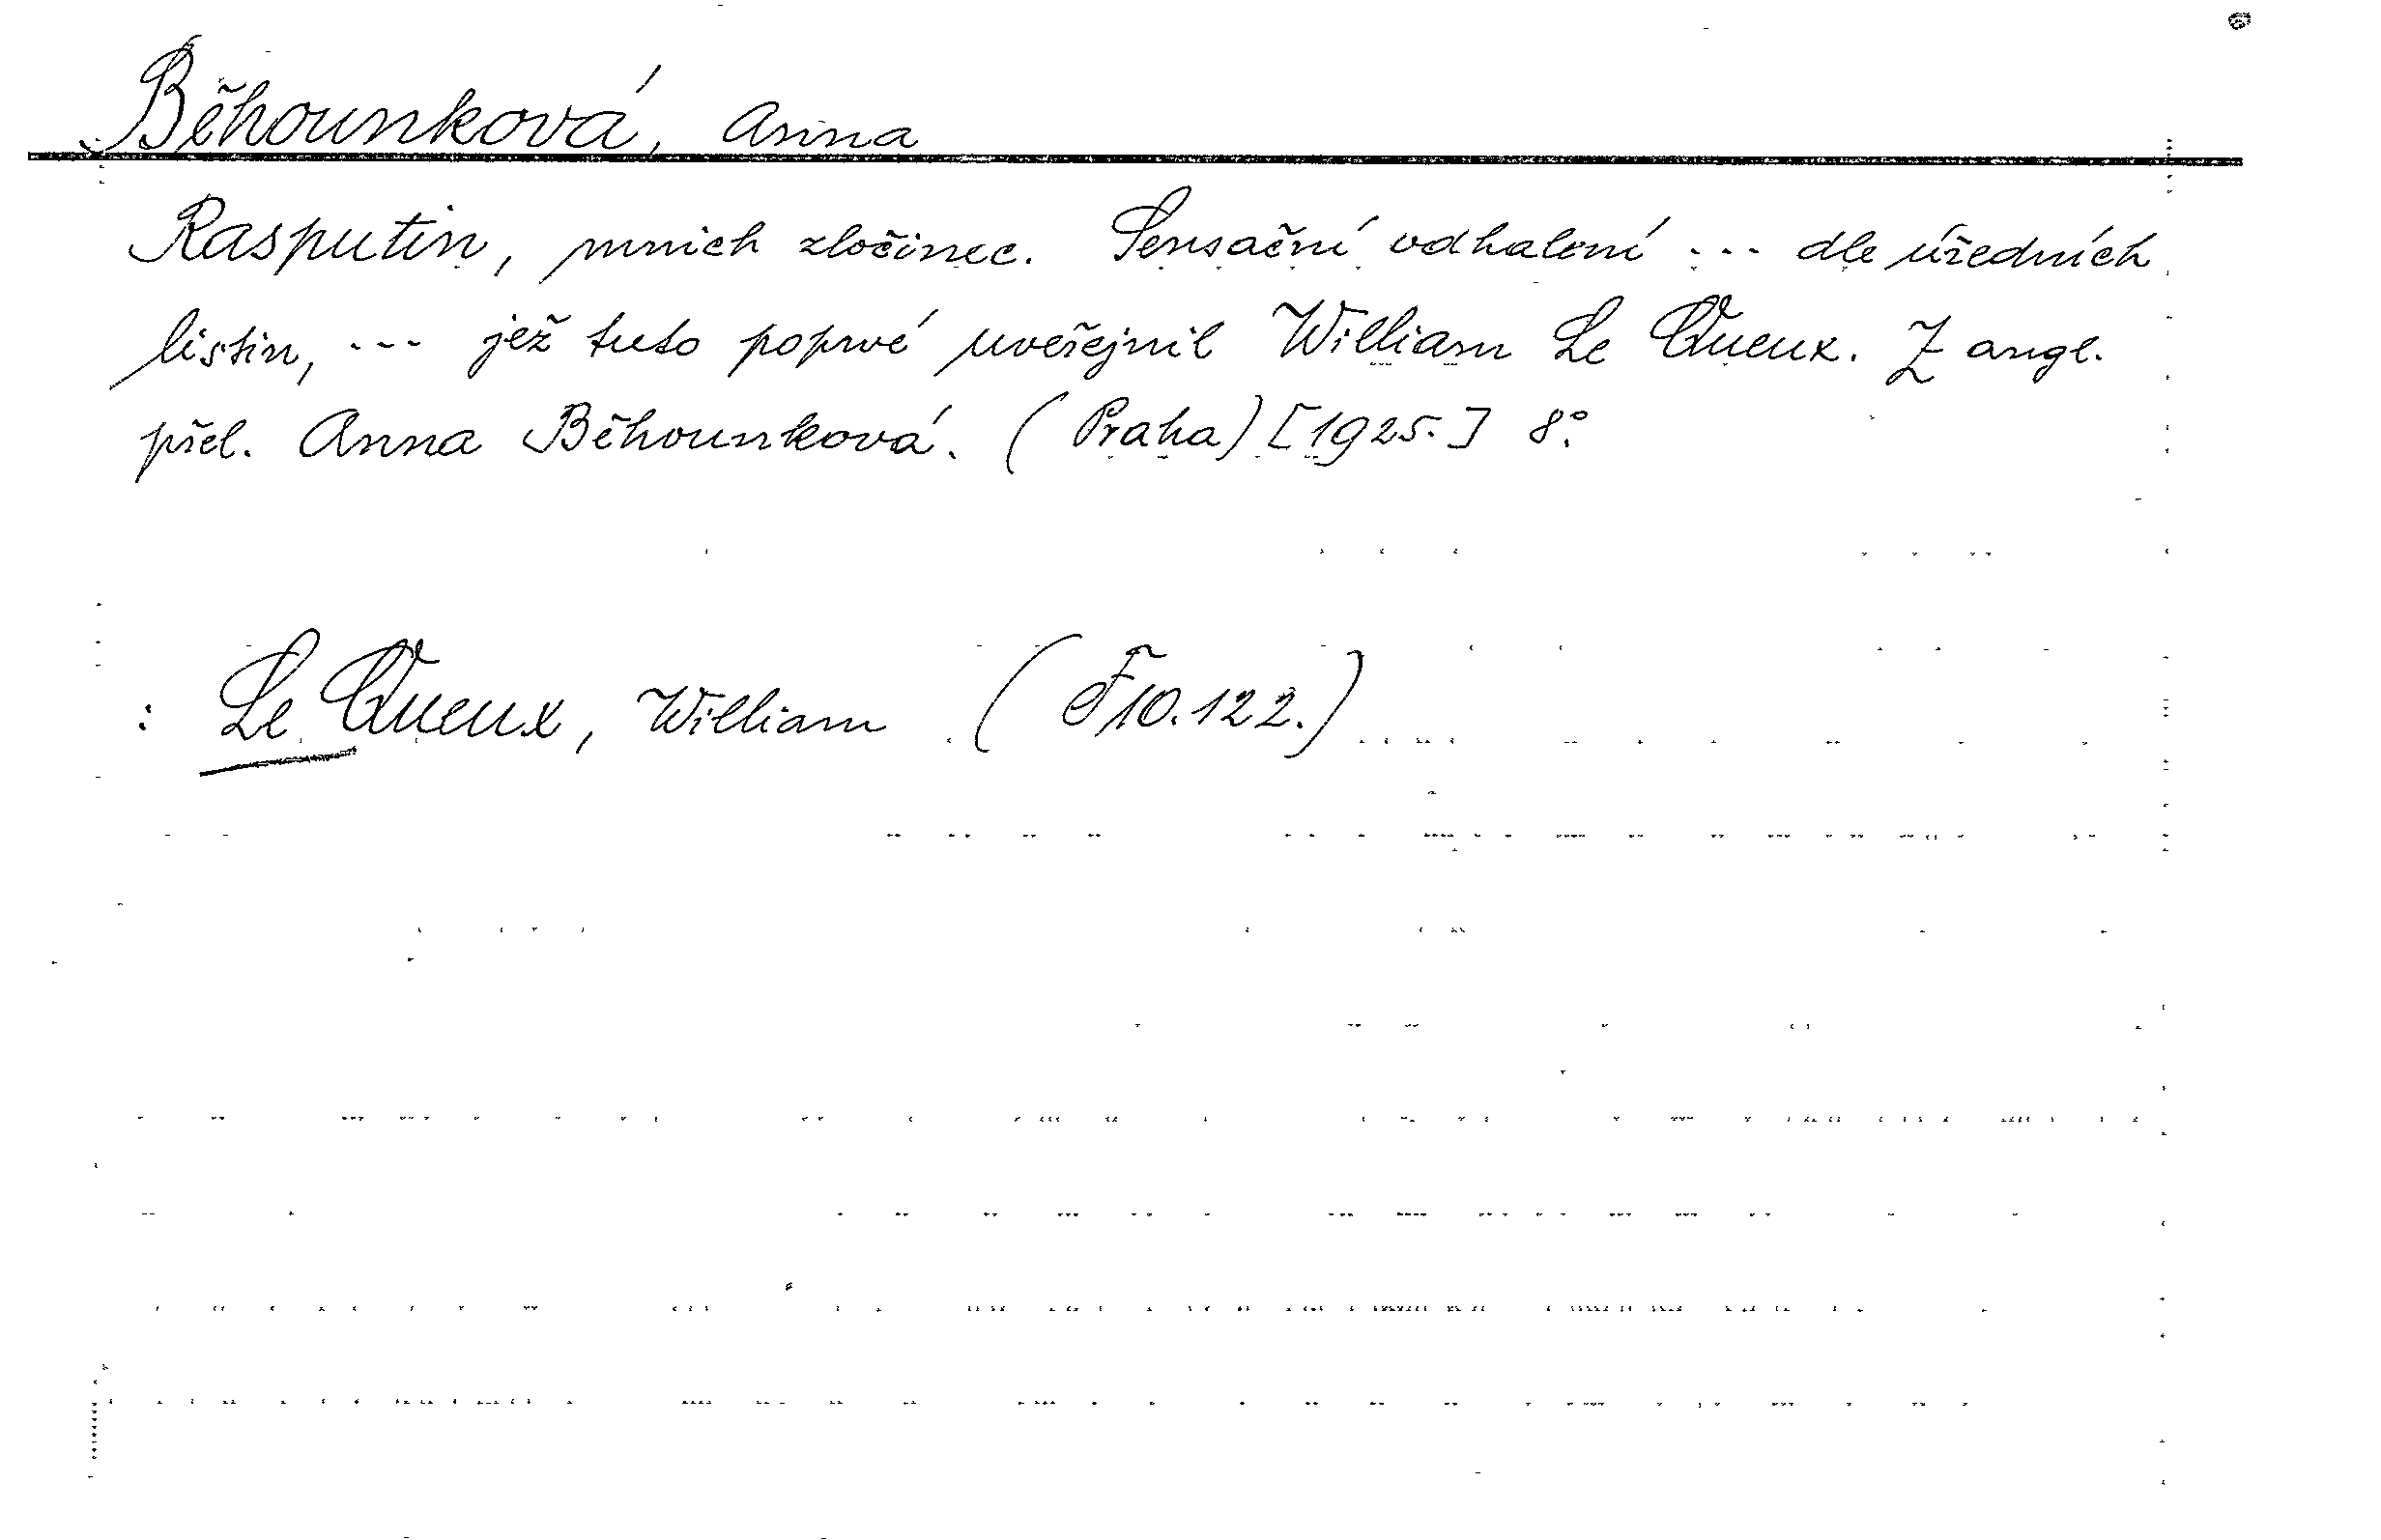 Běhounková, Anna
Rasputin, mnich zločinec. Sensační odhalení --- dle úředních
listin, --- jež tuto poprvé uveřejnil William Le Queux. Z angl.
přel. Anna Běhounková. (Praha) [1925.] 8°.
: Le Queux, William (F10.122.)